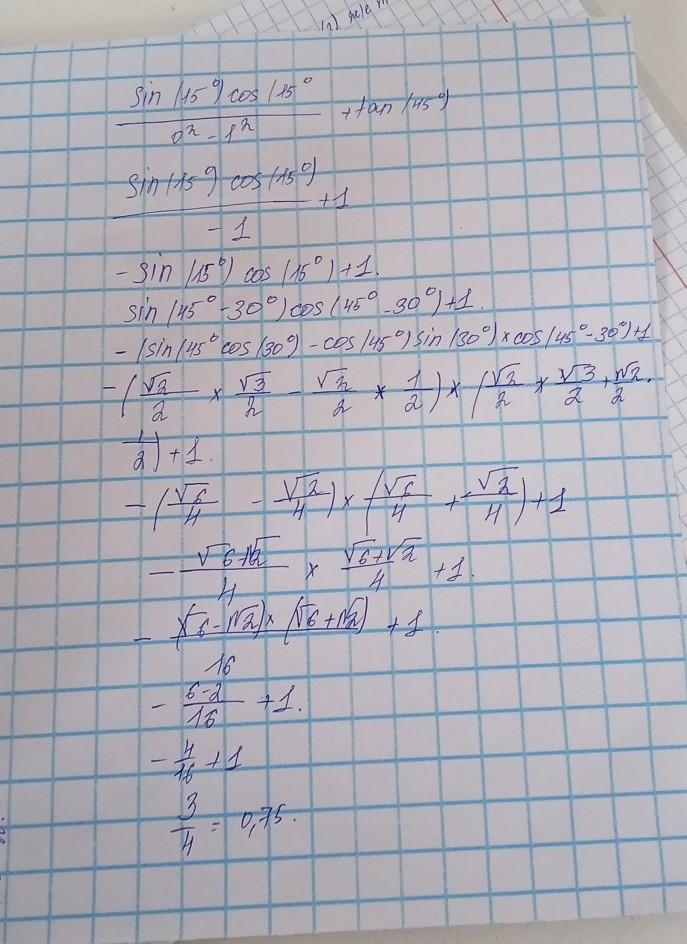 sin(15°)cos(15°
0² - 1² + tan(45°)
sin(15°) cos(15°)
- 1 + 1
- sin(15°) cos(15°) + 1.
sin(45° - 30°)cos(45° - 30°) + 1.
- (sin(45° cos(30°) - cos(45°) sin(30°) × cos(45° - 30°) + 1
- (√2/2 × √3/2 - √2/2 × 1/2) × (√2/2 × √3/2 + √2/2 ·
1/2) + 1.
- (√6/4 - √2/4) × (√6/4 + √2/4) + 1
- √6+√2/4 × √6+√2/4 + 1.
- (√6 - √2) × (√6 + √2)/16 + 1.
- 6-2/16 + 1.
- 4/16 + 1
3/4 = 0,75.